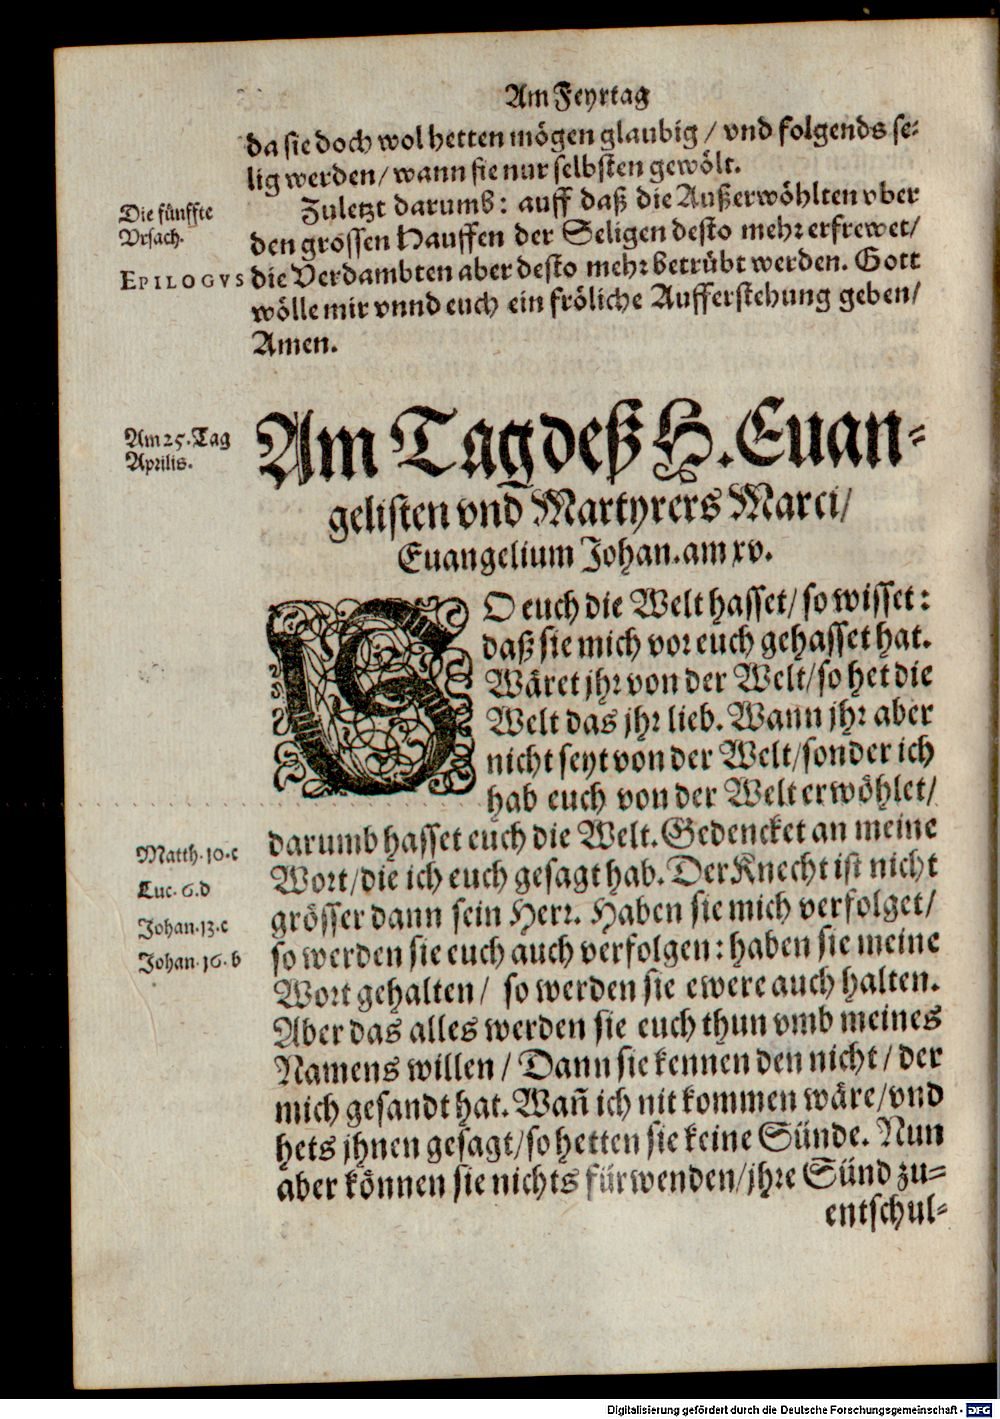 Am Feyrtag
da sie doch wol hetten mögen glaubig / vnd folgends se-
lig werden / wann sie nur selbsten gewölt.
Die fünffte
Vrsach.
Zuletzt darumb: auff daß die Außerwöhlten vber
den grossen Hauffen der Seligen desto mehr erfrewet /
EPILOGVS
die Verdambten aber desto mehr betrübt werden. Gott
wölle mir vnnd euch ein fröliche Aufferstehung geben /
Amen.
Am 25. Tag
Aprilis.
Am Tag deß H. Euan-
gelisten vnd Martyrers Marci /
Euangelium Johan. am xv.
SO euch die Welt hasset / so wisset:
daß sie mich vor euch gehasset hat.
Wäret jhr von der Welt / so het die
Welt das jhr lieb. Wann jhr aber
nicht seyt von der Welt / sonder ich
hab euch von der Welt erwöhlet /
darumb hasset euch die Welt. Gedencket an meine
Matth. 10. c
Wort / die ich euch gesagt hab. Der Knecht ist nicht
Luc. 6. d
grösser dann sein Herr. Haben sie mich verfolget /
Johan. 13. c
so werden sie euch auch verfolgen: haben sie meine
Johan. 16. b
Wort gehalten / so werden sie ewere auch halten.
Aber das alles werden sie euch thun vmb meines
Namens willen / Dann sie kennen den nicht / der
mich gesandt hat. Wañ ich nit kommen wäre / vnd
hets jhnen gesagt / so hetten sie keine Sünde. Nun
aber können sie nichts fürwenden / jhre Sünd zu-
entschul-
Digitalisierung gefördert durch die Deutsche Forschungsgemeinschaft - DFG